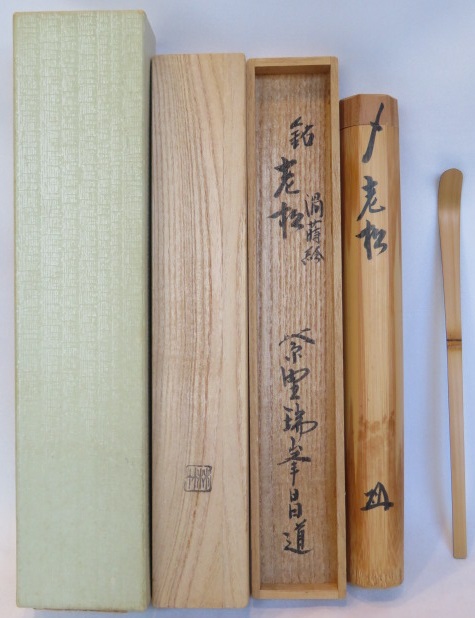 銘 老松
渦蒔絵
紫野瑞峯昌道
〆 老松